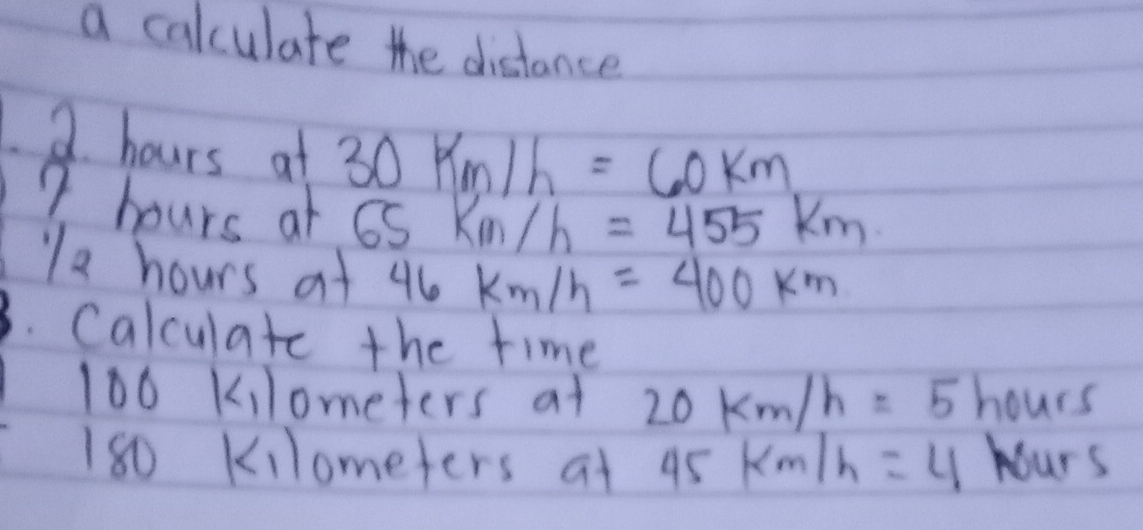 a calculate the distance
1. 2. hours at 30 Km/h = 60 Km
7 hours at 65 Km/h = 455 Km.
1/2 hours at 46 km/h = 400 Km
B. Calculate the time
100 Kilometers at 20 Km/h = 5 hours
180 Kilometers at 45 Km/h = 4 hours